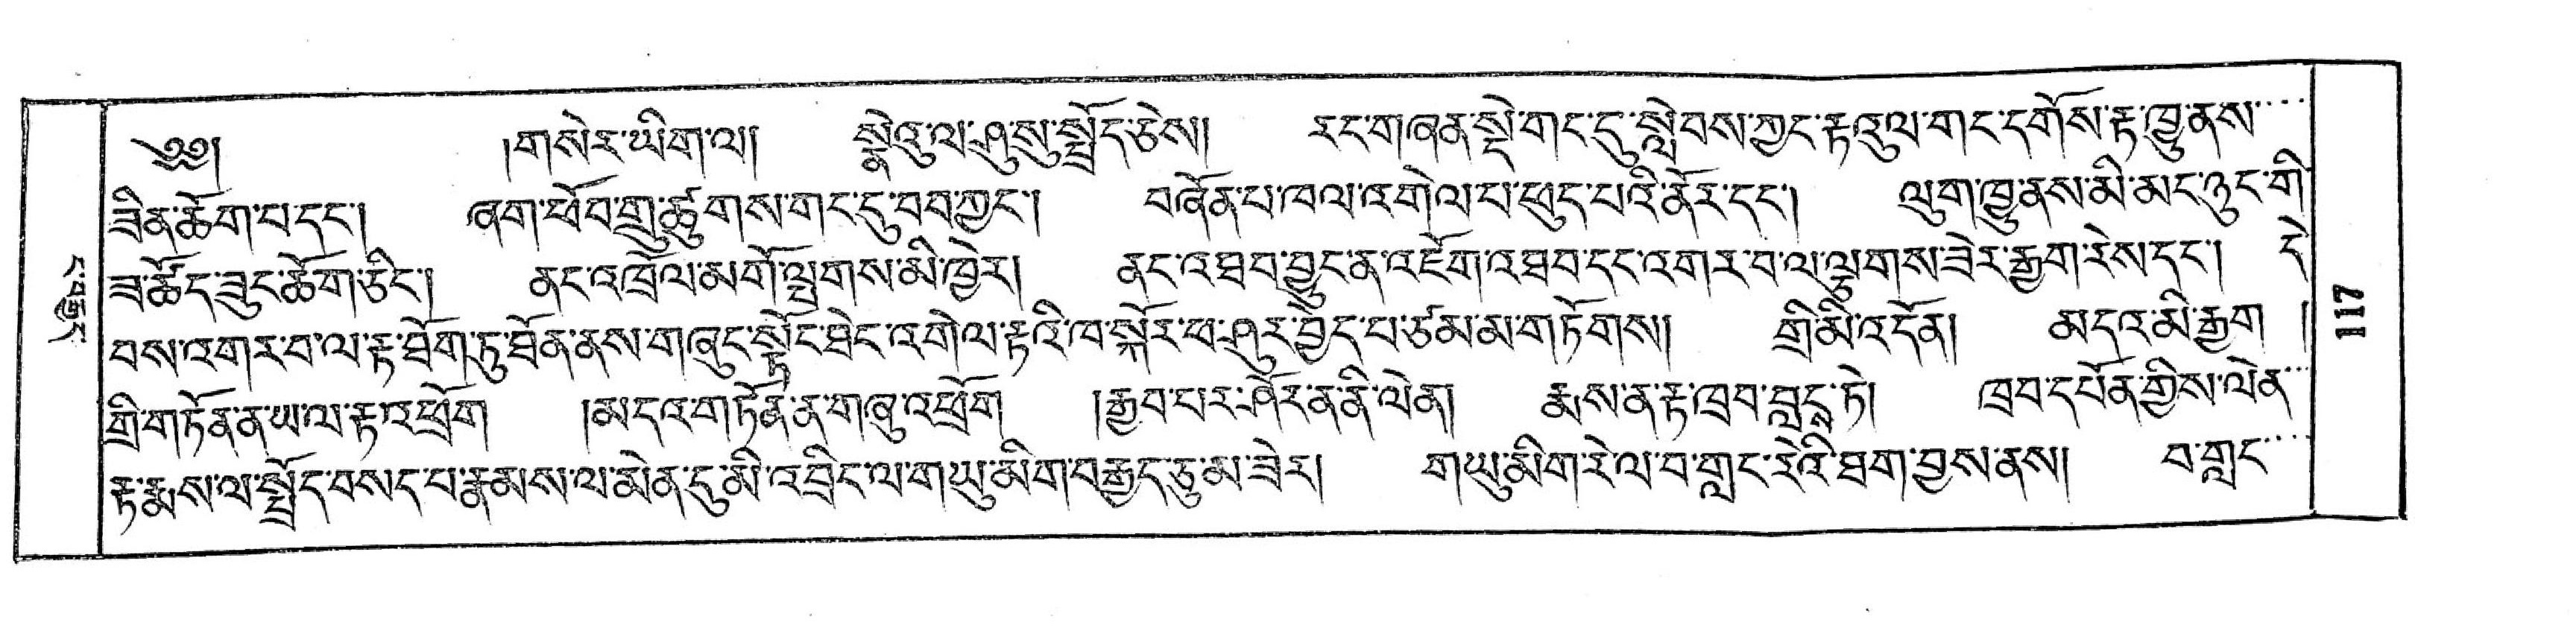 ༄༅། །གསེར་ཡིག་ལ། སྣེའུ་ལ་ཤུ་སུ་སྤྲོད་ཅེས། རང་གཞན་སྡེ་གང་དུ་སླེབས་ཀྱང་རྟ་འུལ་གང་དགོས་རྟ་ཁྱུ་ནས་
ཟིན་ཆོག་པ་དང་། ཞག་ཕོབ་གྲུ་ཚུགས་གང་དུ་བབ་ཀྱང་། བཞོན་པ་ཁལ་འགེལ་པ་ཕུད་པའི་ནོར་དང་། ལུག་ཁྱུ་ནས་མི་མང་ཉུང་གི་
ཟ་ཚོད་ཟུང་ཆོག་ཅིང་། ནང་འཁྲོལ་མགོ་ལྤགས་མི་ཁྱེར། ནང་འཐབ་བྱུང་ན་འཇོག་འཐབ་དང་འགར་བ་ལ་ལྟུགས་ཟེར་རྒྱག་རེས་དང་། དེ་
བས་འགར་བ་ལ་རྟ་ཐོག་ཏུ་ཐོན་ནས་གཞུང་སྟོང་ཐེང་འགེལ་རྟའི་ཁ་སྐོར་ཕ་ཤུར་བྱེད་པ་ཙམ་མ་གཏོགས། གྲི་མི་འདོན། མདའ་མི་རྒྱག །
གྲི་གཏོན་ན་ཡ་ལ་རྟ་འཕྲོག །མདའ་གཏོན་ན་གཞུ་འཕྲོག །རྒྱབ་པར་ཤོར་ན་ནི་ལེན། རྨས་ན་རྟ་ཁྲབ་བླངྶ་ཏེ། ཁྲབ་དཔོན་གྱིས་ལེན་
རྟ་རྨས་ལ་སྤྲོད་བསད་པ་རྣམས་ལ་མེན་དུ་མི་འབྲིང་ལ་གཡུ་མིག་བརྒྱད་ཅུ་མ་ཟེར། གཡུ་མིག་རེ་ལ་བ་གླང་རེའི་ཐག་བྱས་ནས། བ་གླང་
117